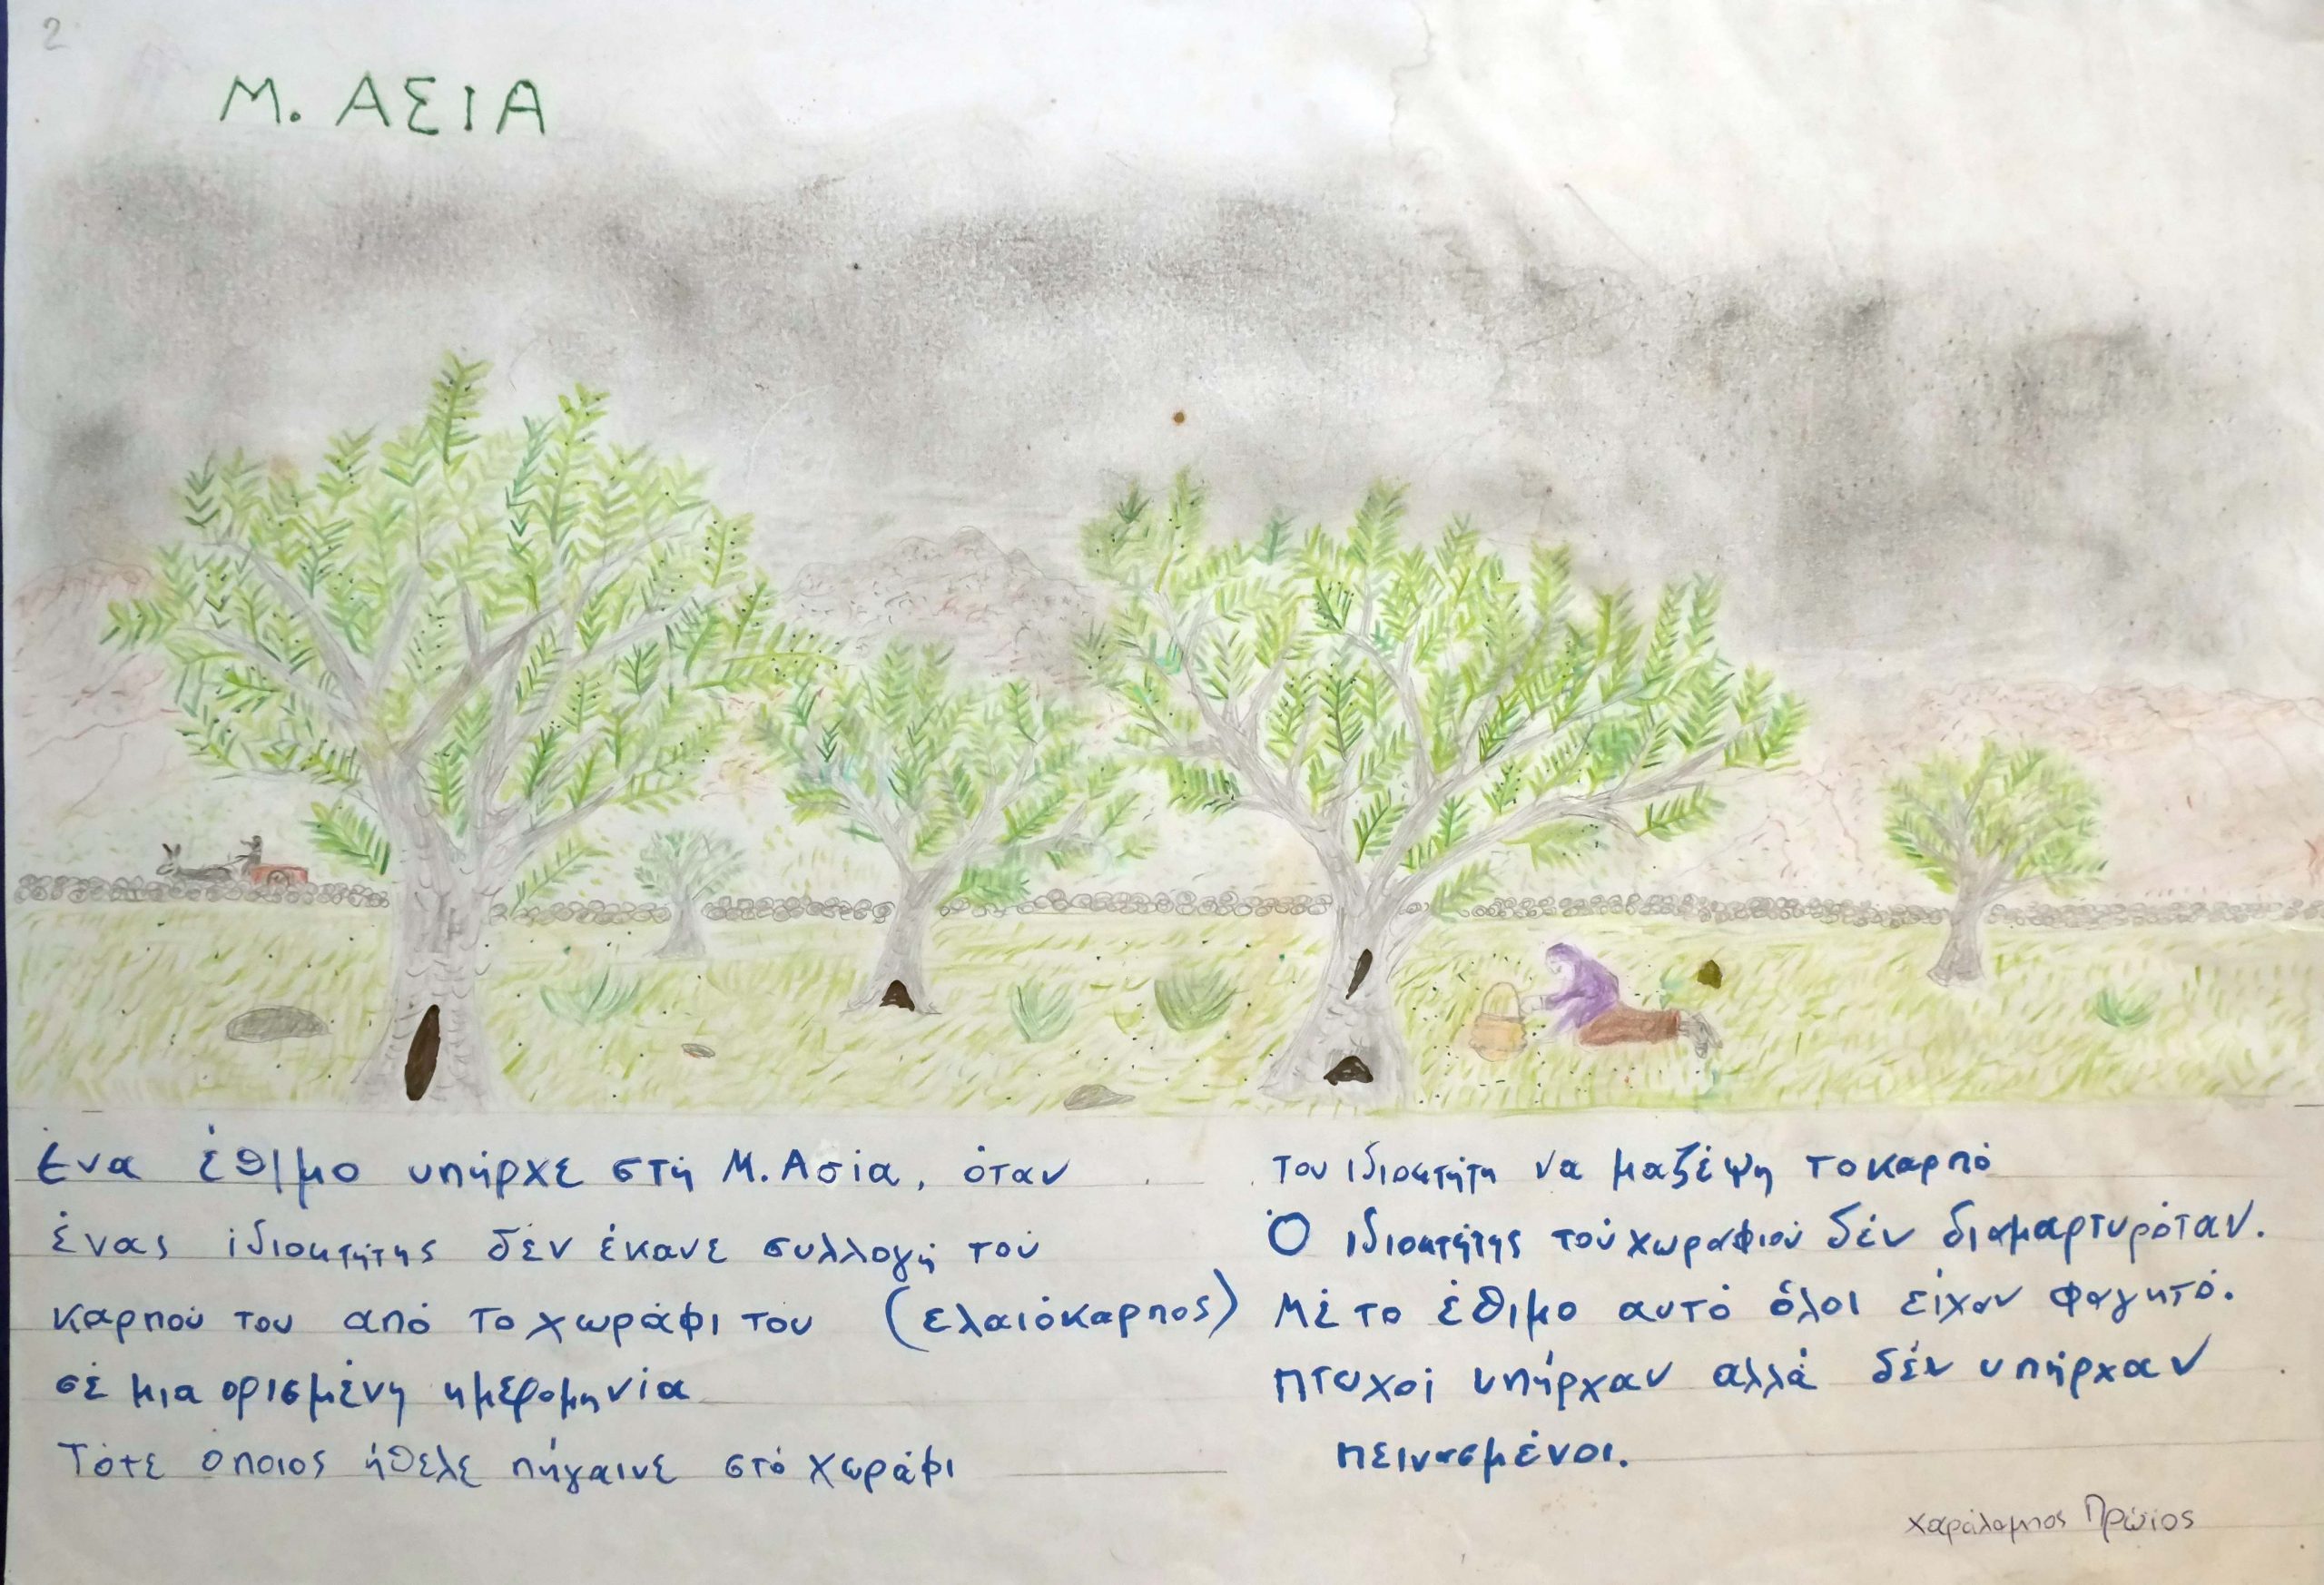 2
Μ. ΑΣΙΑ
Ένα έθιμο υπήρχε στή Μ. Ασία, όταν
ένας ιδιοκτήτης δέν έκανε συλλογή τού
καρπού του από το χωράφι του (ελαιόκαρπος)
σέ μια ορισμένη ημερομηνία
Τότε όποιος ήθελε πήγαινε στό χωράφι
του ιδιοκτήτη να μαζέψη το καρπό
Ο ιδιοκτήτης τού χωραφιού δέν διαμαρτυρόταν.
Μέ το έθιμο αυτό όλοι είχαν φαγητό.
πτωχοί υπήρχαν αλλά δέν υπήρχαν
πεινασμένοι.
Χαράλαμπος Πρώιος